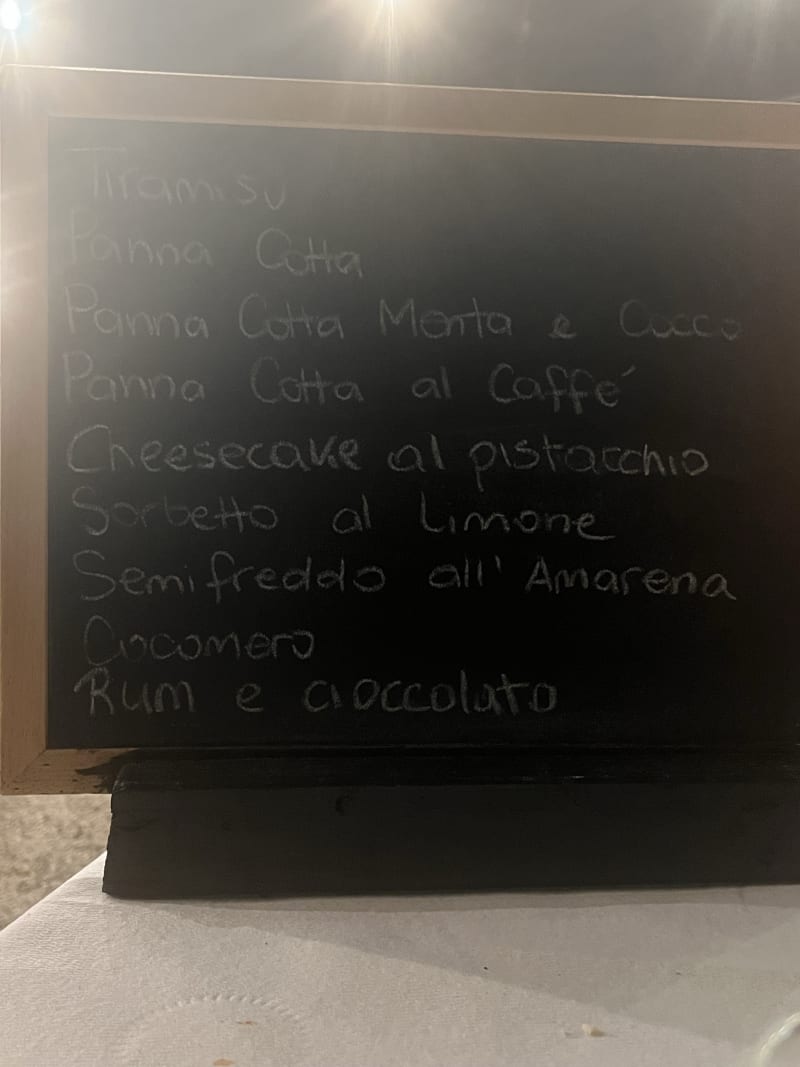 Tiramisu
Panna Cotta
Panna Cotta Menta e Cocco
Panna Cotta al Caffé
Cheesecake al pistacchio
Sorbetto al Limone
Semifreddo all' Amarena
Cocomero
Rum e cioccolato